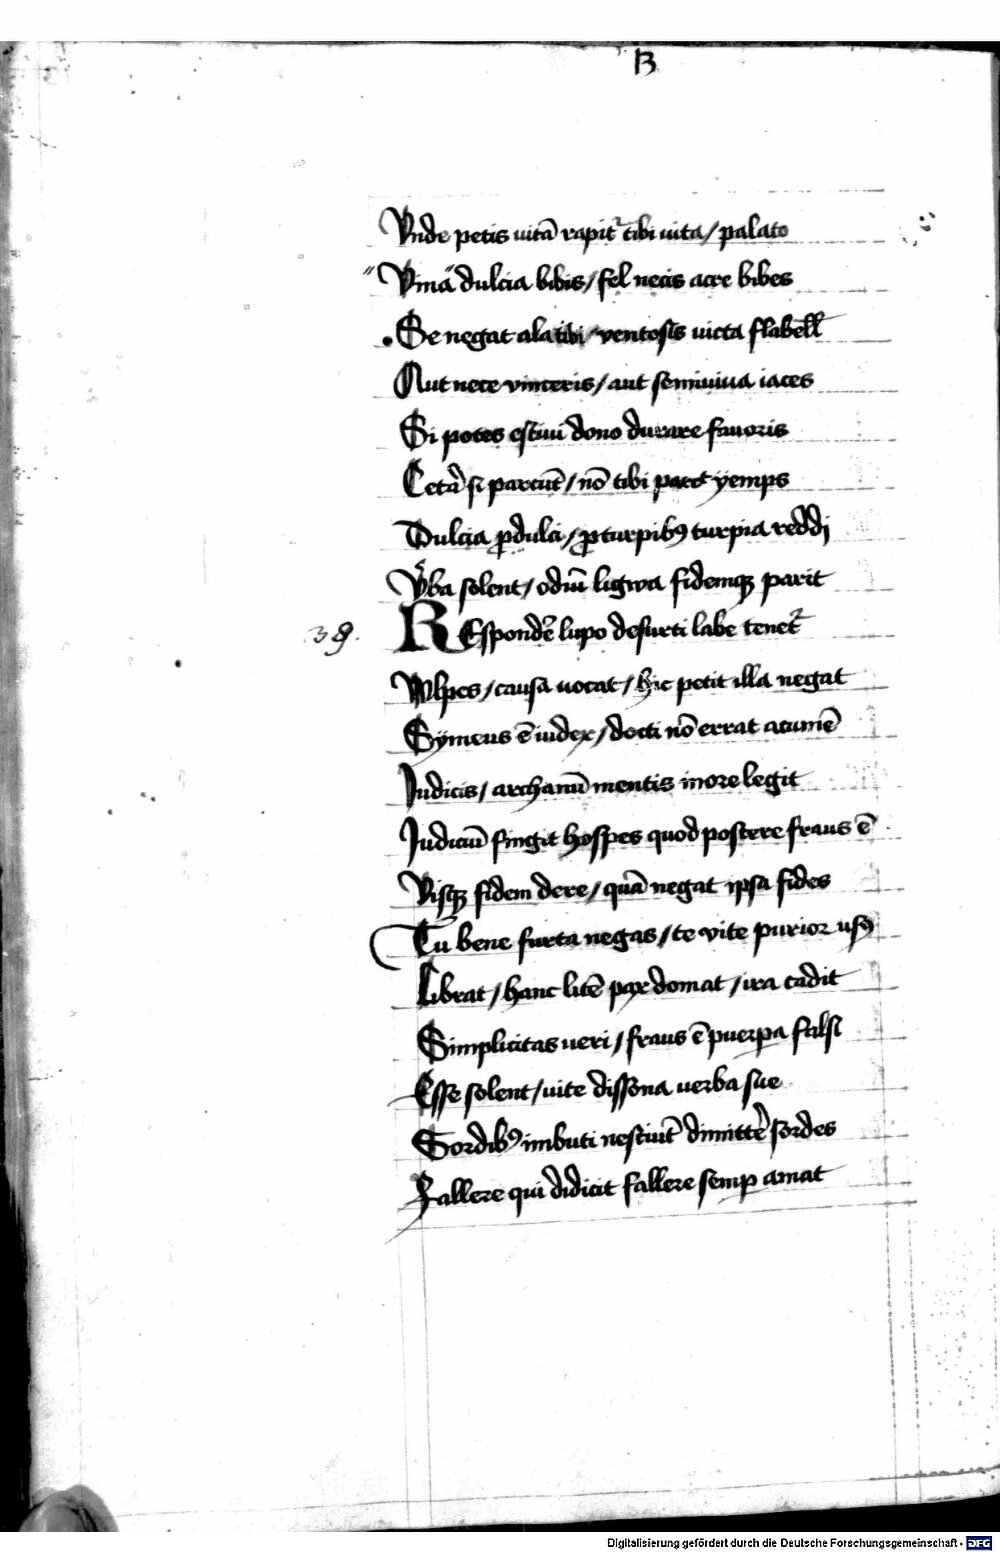 B
Vnde petis uitã rapit᷑ tibi uita / palato
Vina dulcia bibis / fel necis acre bibes
Se negat ala tibi / ventosis uicta flabell
Aut nece vinceris / aut semiuiua iaces
Si potes estiui dono durare fauoris
Cetã si parcũt / nõ tibi parc̃ yemps
Dulcia ꝓ dulci / ꝓ turpibꝰ turpia reddi
Vba solent / odiũ ligwa fidemqꝫ parit
39.
REspondẽ lupo de furti labe tenet᷑
Wlpes / causa uocat / hic petit illa negat
Symeus ẽ iudex / docti nõ errat acumẽ
Judicis / archanũ mentis in ore legit
Judiciũ fingit hospes quod poscere fraus ẽ
Visqꝫ fidem dere / quã negat ipsa fides
Tu bene furta negas / te vite purior usꝰ
Librat / hanc litẽ pax domat / ira cadit
Simplicitas ueri / fraus ẽ puerpa falsi
Esse solent / uite dissona uerba sue
Sordibꝰ imbuti nesciũt dimittẽ sordes
Fallere qui didicit fallere semꝑ amat
Digitalisierung gefördert durch die Deutsche Forschungsgemeinschaft - DFG